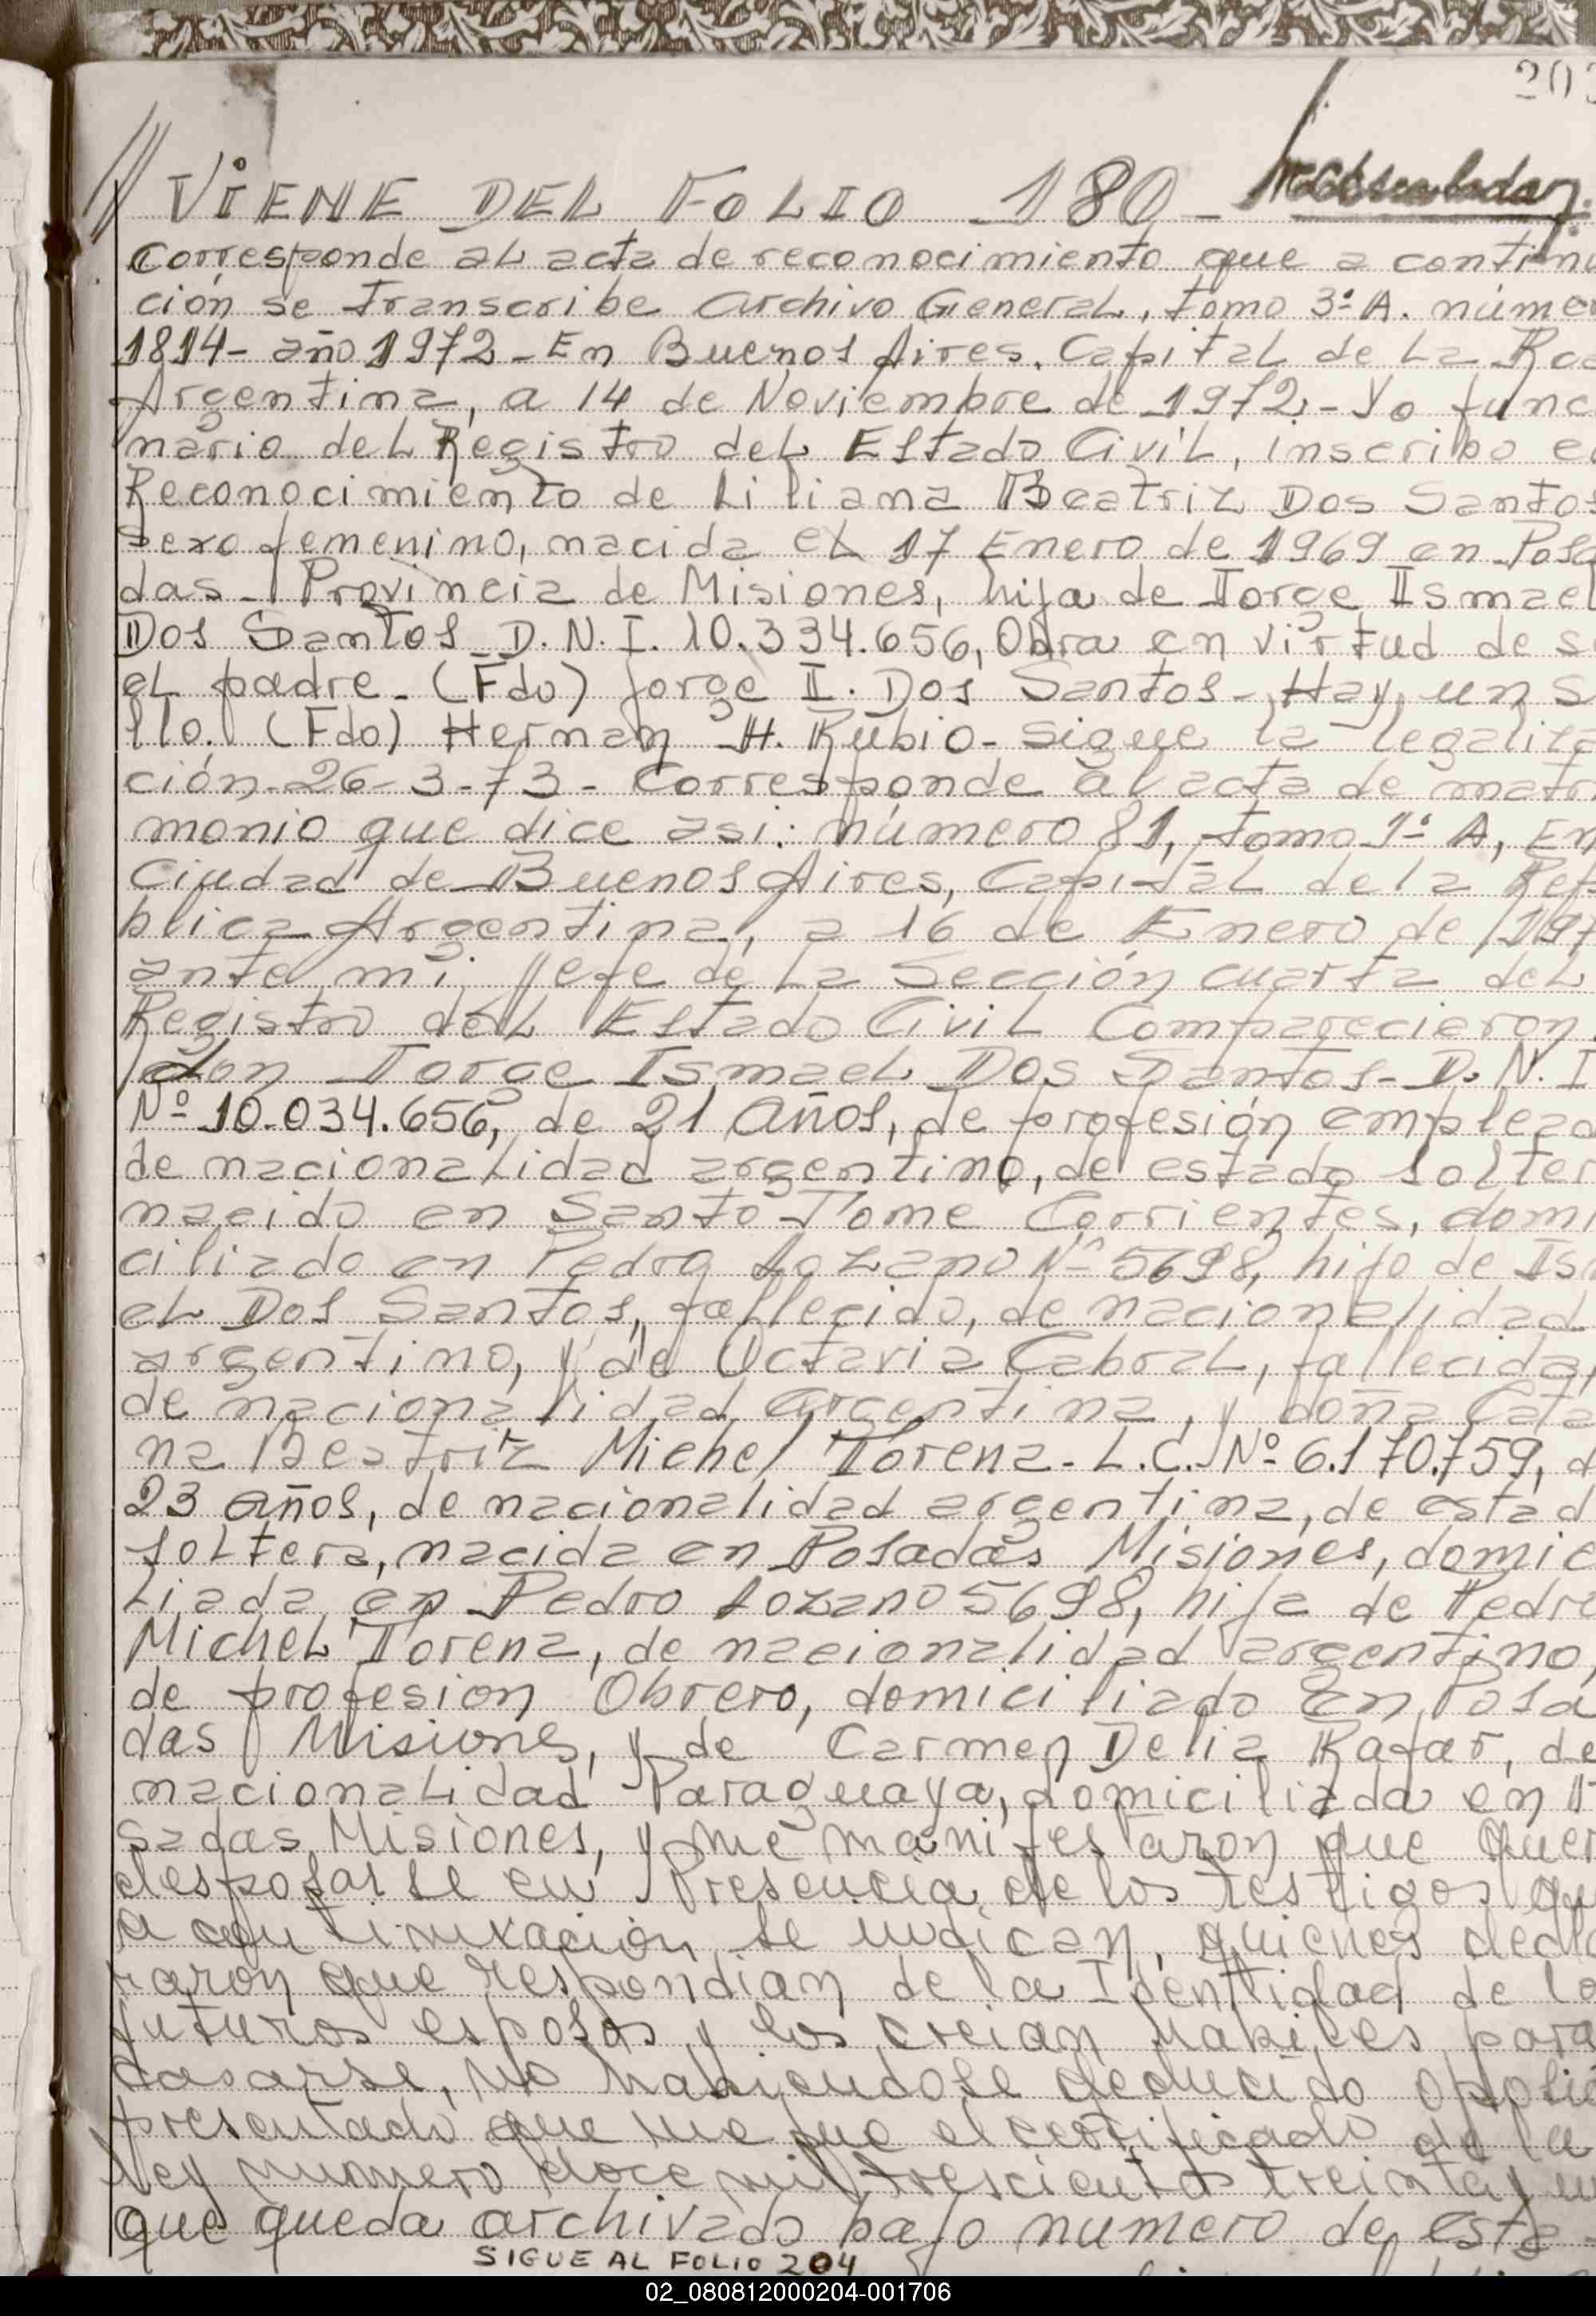 203
VIENE DEL FOLIO 180-
Corresponde al acta de reconocimiento que a continu
ción se transcribe Archivo General, tomo 3º A. núme
1814- año 1972- En Buenos Aires, Capital de la Rca
Argentina, a 14 de Noviembre de 1972.- Yo func
nario del Registro del Estado Civil, inscribo e
Reconocimiento de Liliana Beatriz Dos Santos
sexo femenino, nacida el 17 Enero de 1969 en Posa
das- Provincia de Misiones, hija de Jorge Ismael
Dos Santos D.N.I. 10.334.656, Obra en virtud de s
el padre- (Fdo) Jorge I. Dos Santos- Hay un s
llo. (Fdo) Hernan H. Rubio- Sigue la legaliza
ción-26-3-73- Corresponde al acta de matri
monio que dice asi: número 81, tomo 1º A, En
Ciudad de Buenos Aires, Capital de la Rep
blica Argentina, a 16 de Enero de 197
ante mi, Jefe de la Sección cuarta del
Registro del Estado Civil Comparecieron
don Jorge Ismael Dos Santos- D.N.I
Nº 10.034.656, de 21 años, de profesión emplead
de nacionalidad argentino, de estado solter
nacido en Santo Tome Corrientes, domi
ciliado en Pedro Lozano Nº 5698, hijo de Ism
el Dos Santos, fallecido, de nacionalidad
argentino, y de Octavia Cabral, fallecida,
de nacionalidad argentina, y doña Cata
na Beatriz Michel Torena- L.C. Nº 6.170.759, d
23 años, de nacionalidad argentina, de estad
soltera, nacida en Posadas Misiones, domic
liada en Pedro Lozano 5698, hija de Pedro
Michel Torena, de nacionalidad argentino,
de profesion Obrero, domiciliado en Posa
das Misiones, y de Carmen Delia Rafar, de
nacionalidad Paraguaya, domiciliada en P
sadas Misiones, y me manifestaron que quer
desposarse en Presencia de los testigos qu
a continuxación se indican, quienes decla
raron que respondian de la Identidad de lo
futuros esposos y los creian habiles para
casarse, no habiendose deducido oposic
presentado que me fue el certificado de la
ley numero doce mil trescientos treinta y u
que queda archivado bajo numero de esta
SIGUE AL FOLIO 204
02_080812000204-001706